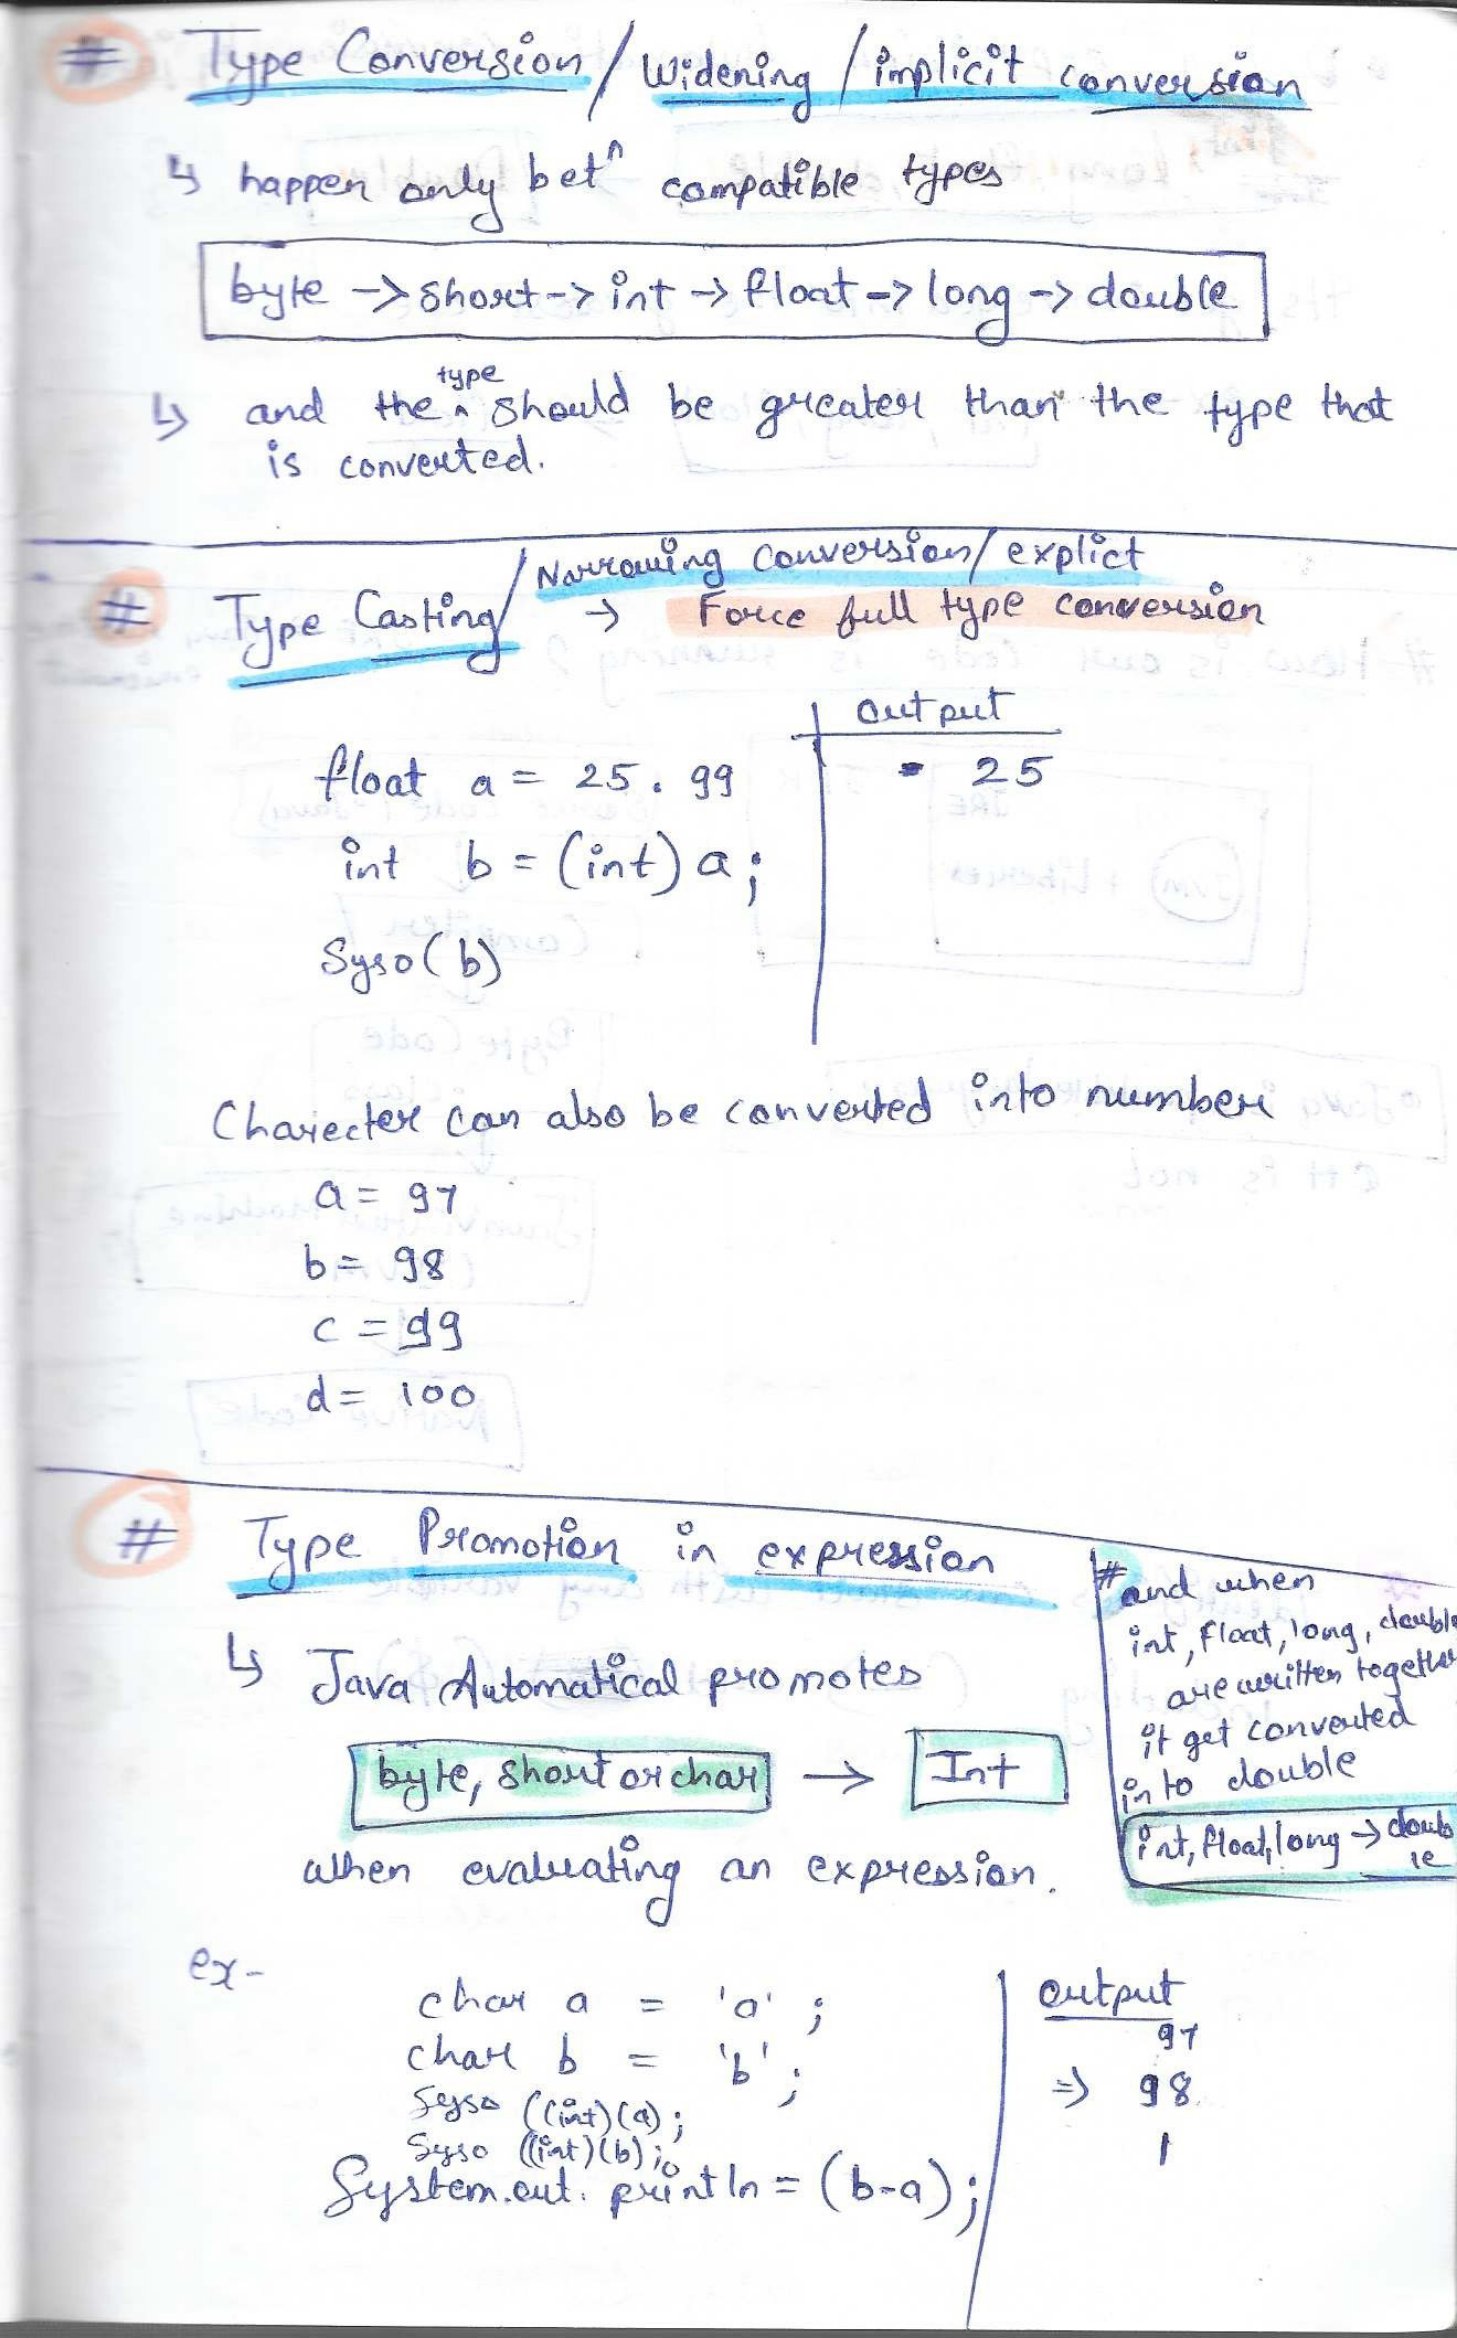 # Type Conversion / Widening / implicit conversion
↳ happen only betⁿ compatible types
byte -> short -> int -> float -> long -> double
↳ and the type should be greater than the type that
is converted.
# Type Casting / Narrowing conversion / explict
→ Force full type conversion
output
float a = 25.99
25
int b = (int) a;
Syso(b)
Charecter can also be converted into number
a = 97
b = 98
c = 99
d = 100
# Type Promotion in expression
↳ Java Automatical promotes
byte, short or char → Int
when evaluating an expression.
# and when
int, float, long, double
are written together
it get converted
in to double
int, float, long → doub
le
ex-
char a = 'a' ;
char b = 'b' ;
Syso ((int)(a) ;
Syso ((int)(b) ;
System.out. println = (b-a) ;
output
97
=> 98
1